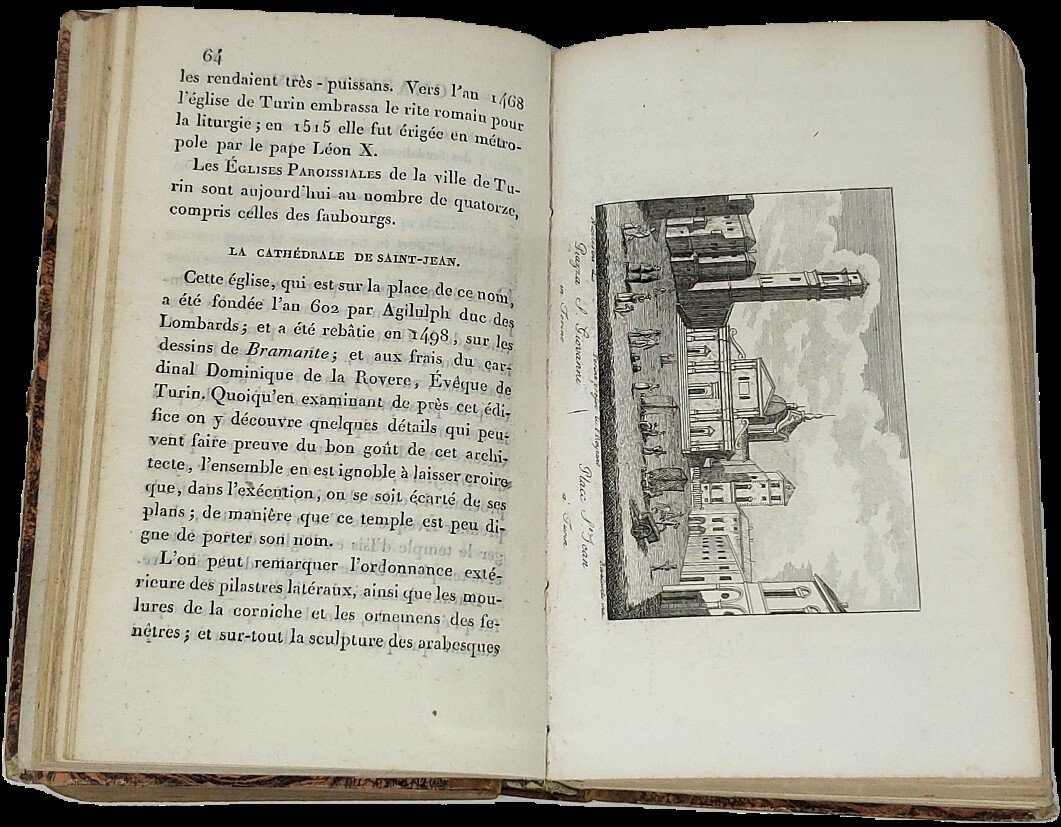 64
les rendaient très-puissans. Vers l'an 1468
l'église de Turin embrassa le rite romain pour
la liturgie; en 1515 elle fut érigée en métro-
pole par le pape Léon X.
Les ÉGLISES PAROISSIALES de la ville de Tu-
rin sont aujourd'hui au nombre de quatorze,
compris celles des faubourgs.
LA CATHÉDRALE DE SAINT-JEAN.
Cette église, qui est sur la place de ce nom,
a été fondée l'an 602 par Agilulph duc des
Lombards; et a été rebâtie en 1498, sur les
dessins de Bramante; et aux frais du car-
dinal Dominique de la Rovere, Évêque de
Turin. Quoiqu'en examinant de près cet édi-
fice on y découvre quelques détails qui peu-
vent faire preuve du bon goût de cet archi-
tecte, l'ensemble en est ignoble à laisser croire
que, dans l'exécution, on se soit écarté de ses
plans; de manière que ce temple est peu di-
gne de porter son nom.
L'on peut remarquer l'ordonnance exté-
rieure des pilastres latéraux, ainsi que les mou-
lures de la corniche et les ornemens des fe-
nêtres; et sur-tout la sculpture des arabesques
Piazza S. Giovanni
in Torino
Place St. Jean
à Turin